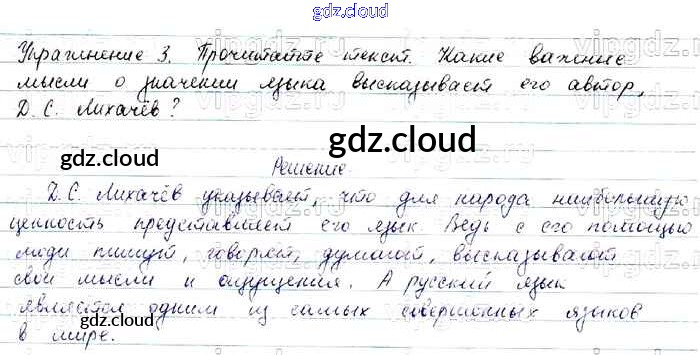 gdz.cloud
Упражнение 3. Прочитайте текст. Какие важные
мысли о значении языка высказывает его автор,
Д. С. Лихачёв?
gdz.cloud
Решение.
Д. С. Лихачёв указывает, что для народа наибольшую
ценность представляет его язык. Ведь с его помощью
люди пишут, говорят, думают, высказывают
свои мысли и ощущения. А русский язык
gdz.cloud
является одним из самых совершенных языков
gdz.cloud
gdz.cloud
в мире.